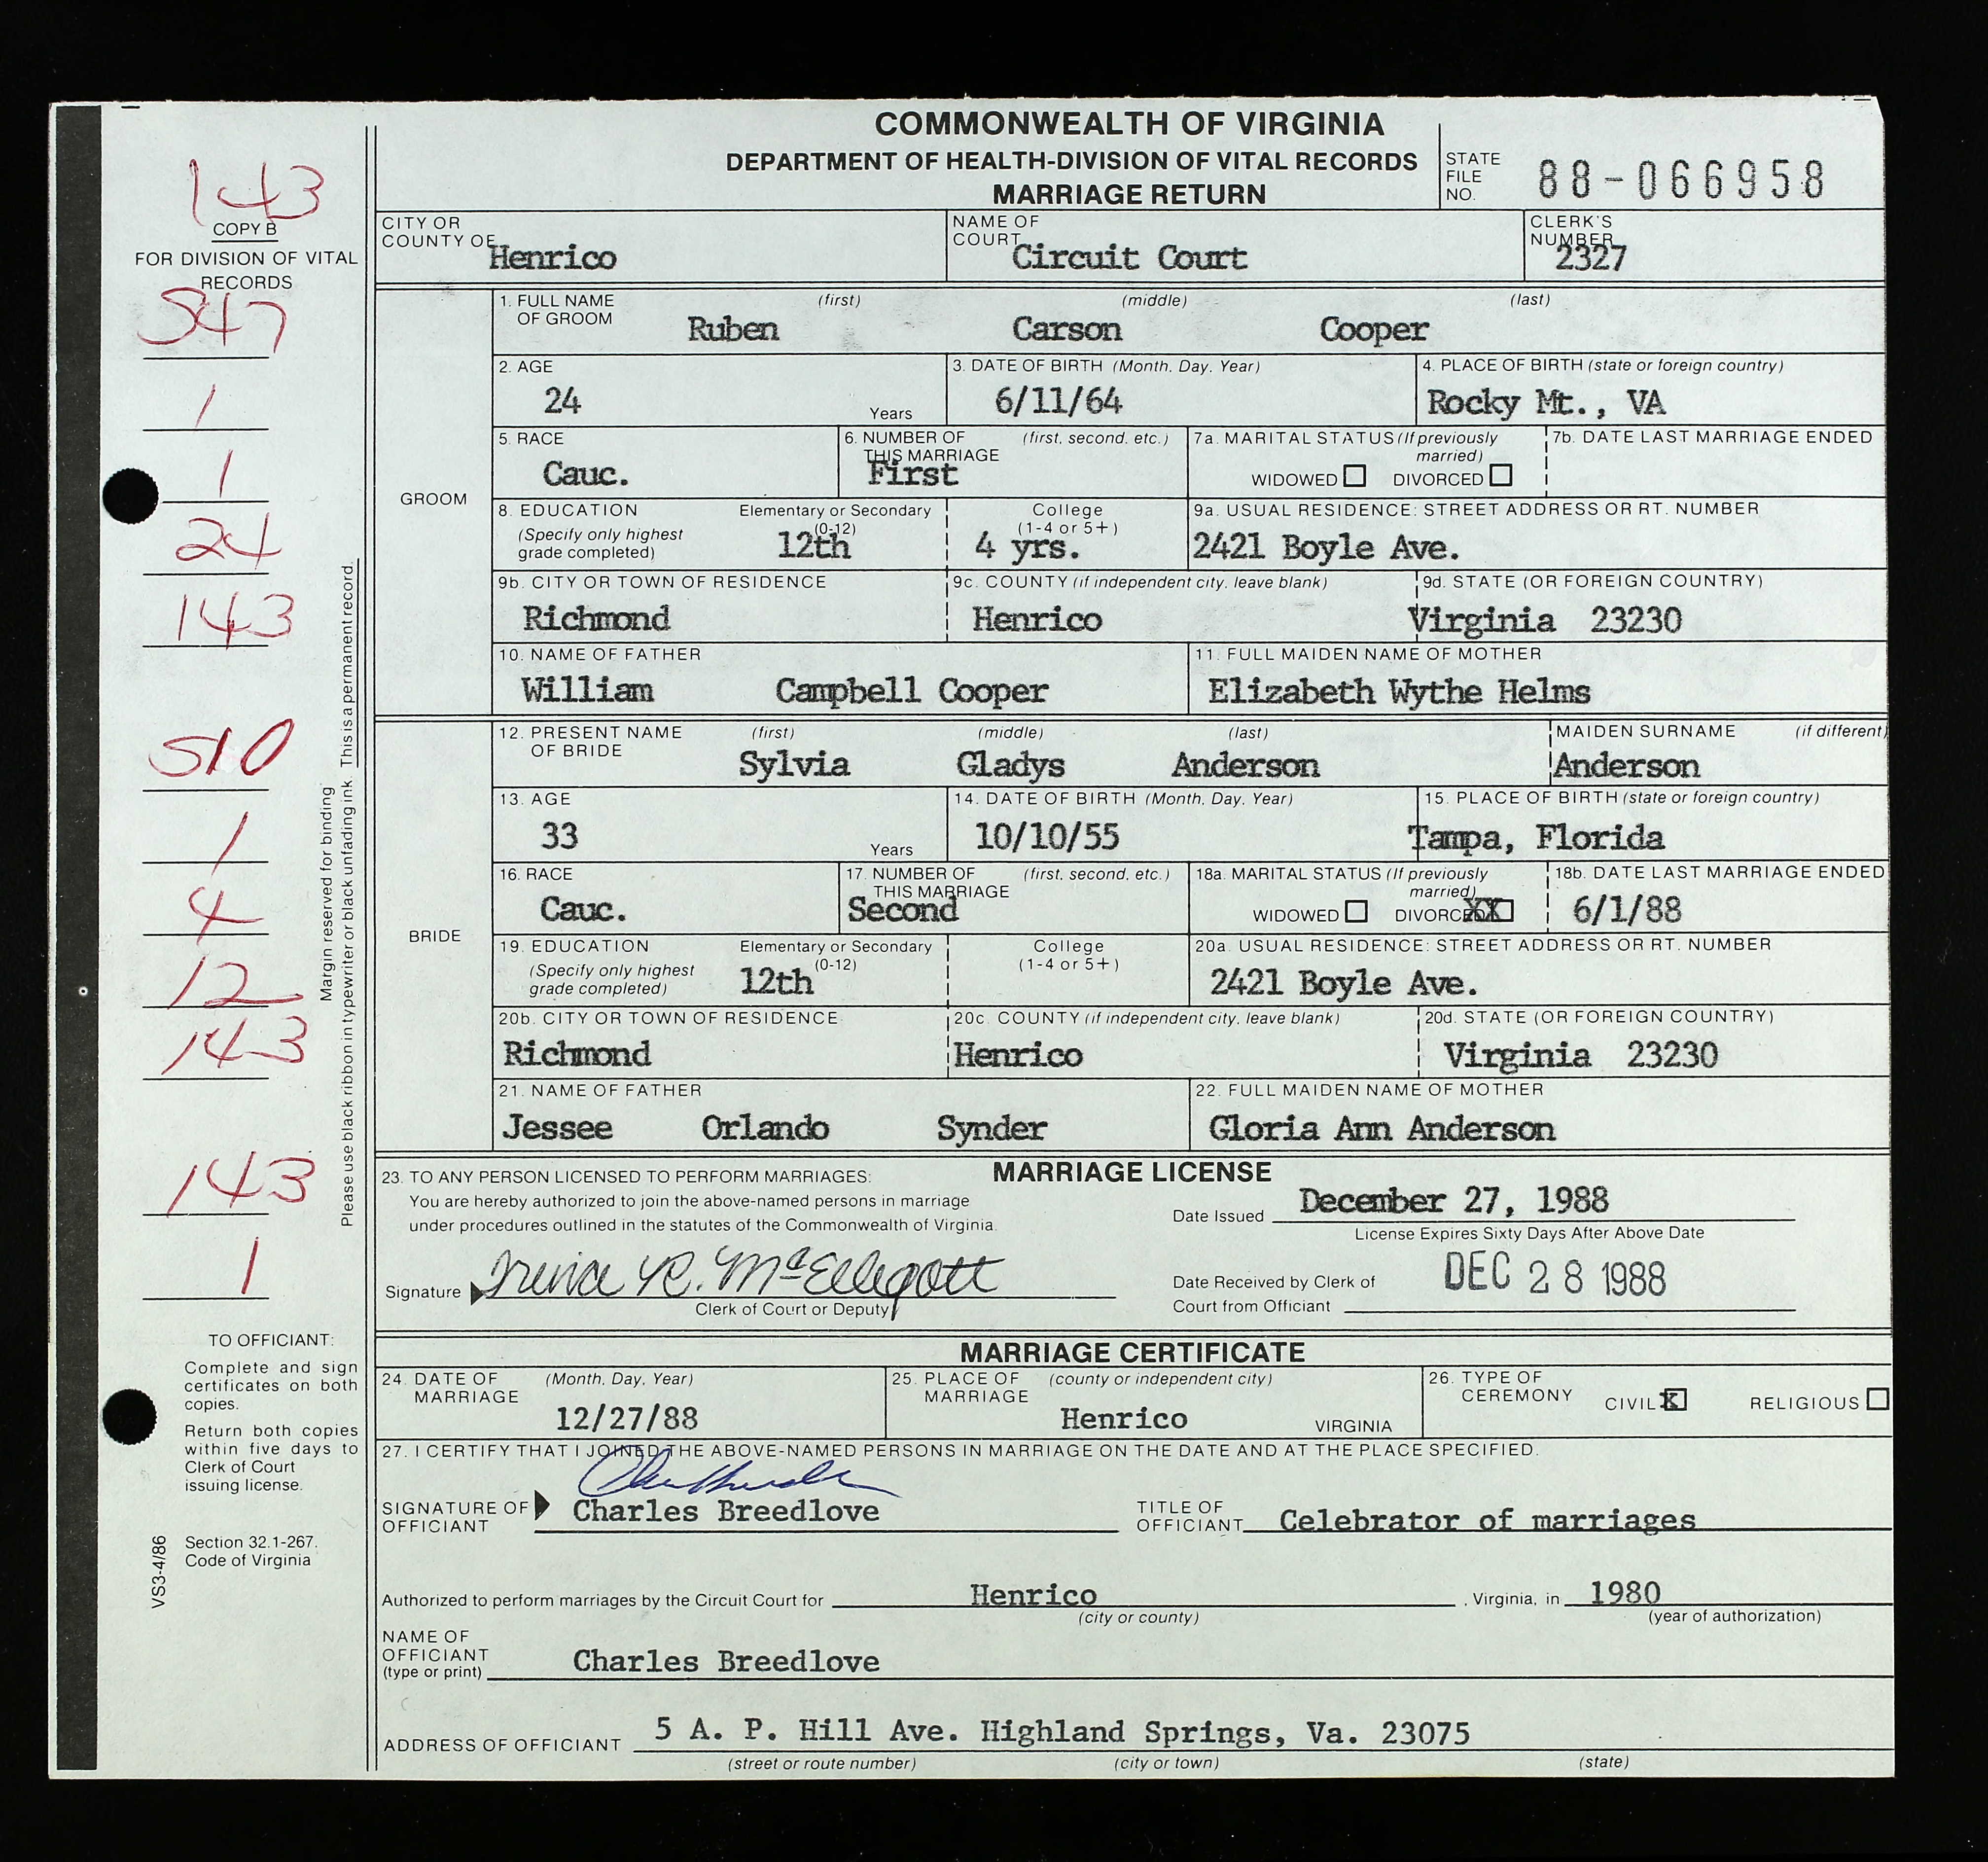 COMMONWEALTH OF VIRGINIA
DEPARTMENT OF HEALTH-DIVISION OF VITAL RECORDS
MARRIAGE RETURN
STATE FILE NO. 88-066958
143
COPY B
FOR DIVISION OF VITAL RECORDS
547
1
1
24
143
510
1
4
12
143
143
1
Margin reserved for binding
Please use black ribbon in typewriter or black unfading ink. This is a permanent record.
TO OFFICIANT:
Complete and sign
certificates on both
copies.
Return both copies
within five days to
Clerk of Court
issuing license.
Section 32.1-267.
Code of Virginia
VS3-4/86
CITY OR COUNTY OF Henrico
NAME OF COURT Circuit Court
CLERK'S NUMBER 2327
GROOM
1. FULL NAME OF GROOM (first) (middle) (last)
Ruben Carson Cooper
2. AGE 24 Years
3. DATE OF BIRTH (Month, Day, Year) 6/11/64
4. PLACE OF BIRTH (state or foreign country) Rocky Mt., VA
5. RACE Cauc.
6. NUMBER OF THIS MARRIAGE (first, second, etc.) First
7a. MARITAL STATUS (If previously married) WIDOWED DIVORCED
7b. DATE LAST MARRIAGE ENDED
8. EDUCATION (Specify only highest grade completed) Elementary or Secondary (0-12) 12th College (1-4 or 5+) 4 yrs.
9a. USUAL RESIDENCE: STREET ADDRESS OR RT. NUMBER 2421 Boyle Ave.
9b. CITY OR TOWN OF RESIDENCE Richmond
9c. COUNTY (if independent city, leave blank) Henrico
9d. STATE (OR FOREIGN COUNTRY) Virginia 23230
10. NAME OF FATHER William Campbell Cooper
11. FULL MAIDEN NAME OF MOTHER Elizabeth Wythe Helms
BRIDE
12. PRESENT NAME OF BRIDE (first) (middle) (last)
Sylvia Gladys Anderson
MAIDEN SURNAME (if different) Anderson
13. AGE 33 Years
14. DATE OF BIRTH (Month, Day, Year) 10/10/55
15. PLACE OF BIRTH (state or foreign country) Tampa, Florida
16. RACE Cauc.
17. NUMBER OF THIS MARRIAGE (first, second, etc.) Second
18a. MARITAL STATUS (If previously married) WIDOWED DIVORCED XX
18b. DATE LAST MARRIAGE ENDED 6/1/88
19. EDUCATION (Specify only highest grade completed) Elementary or Secondary (0-12) 12th College (1-4 or 5+)
20a. USUAL RESIDENCE: STREET ADDRESS OR RT. NUMBER 2421 Boyle Ave.
20b. CITY OR TOWN OF RESIDENCE Richmond
20c. COUNTY (if independent city, leave blank) Henrico
20d. STATE (OR FOREIGN COUNTRY) Virginia 23230
21. NAME OF FATHER Jessee Orlando Synder
22. FULL MAIDEN NAME OF MOTHER Gloria Ann Anderson
MARRIAGE LICENSE
23. TO ANY PERSON LICENSED TO PERFORM MARRIAGES:
You are hereby authorized to join the above-named persons in marriage
under procedures outlined in the statutes of the Commonwealth of Virginia.
Date Issued December 27, 1988
License Expires Sixty Days After Above Date
Signature R. McElligott
Clerk of Court or Deputy
Date Received by Clerk of Court from Officiant DEC 28 1988
MARRIAGE CERTIFICATE
24. DATE OF MARRIAGE (Month, Day, Year) 12/27/88
25. PLACE OF MARRIAGE (county or independent city) Henrico VIRGINIA
26. TYPE OF CEREMONY CIVIL X RELIGIOUS
27. I CERTIFY THAT I JOINED THE ABOVE-NAMED PERSONS IN MARRIAGE ON THE DATE AND AT THE PLACE SPECIFIED.
SIGNATURE OF OFFICIANT Charles Breedlove
TITLE OF OFFICIANT Celebrator of marriages
Authorized to perform marriages by the Circuit Court for Henrico, Virginia, in 1980
(city or county) (year of authorization)
NAME OF OFFICIANT (type or print) Charles Breedlove
ADDRESS OF OFFICIANT 5 A. P. Hill Ave. Highland Springs, Va. 23075
(street or route number) (city or town) (state)